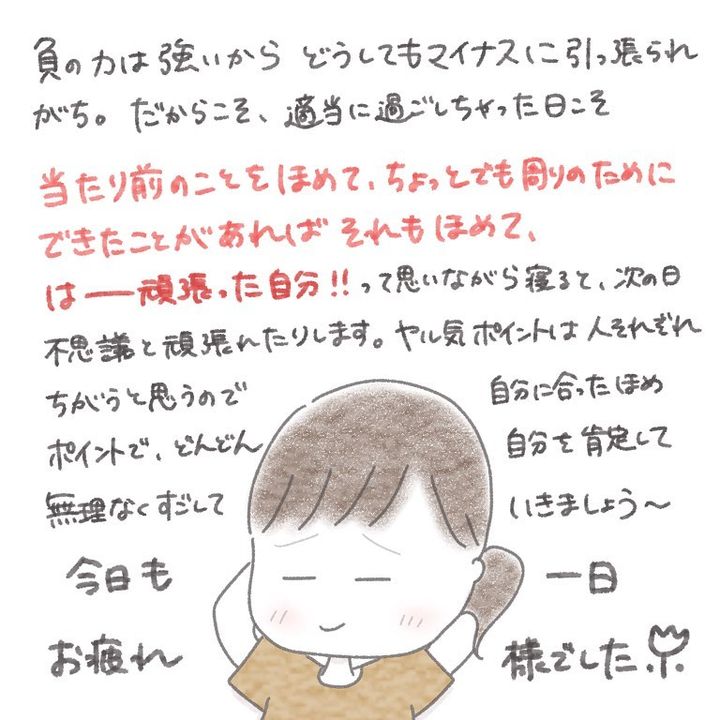 負の力は強いから どうしてもマイナスに引っ張られ
がち。だからこそ、適当に過ごしちゃった日こそ
当たり前のことをほめて、ちょっとでも周りのために
できたことがあれば それもほめて、
はー頑張った自分!!って思いながら寝ると、次の日
不思議と頑張れたりします。ヤル気ポイントは人それぞれ
ちがうと思うので 自分に合ったほめ
ポイントで、どんどん 自分を肯定して
無理なくすごして いきましょう〜
今日も 一日
お疲れ 様でした